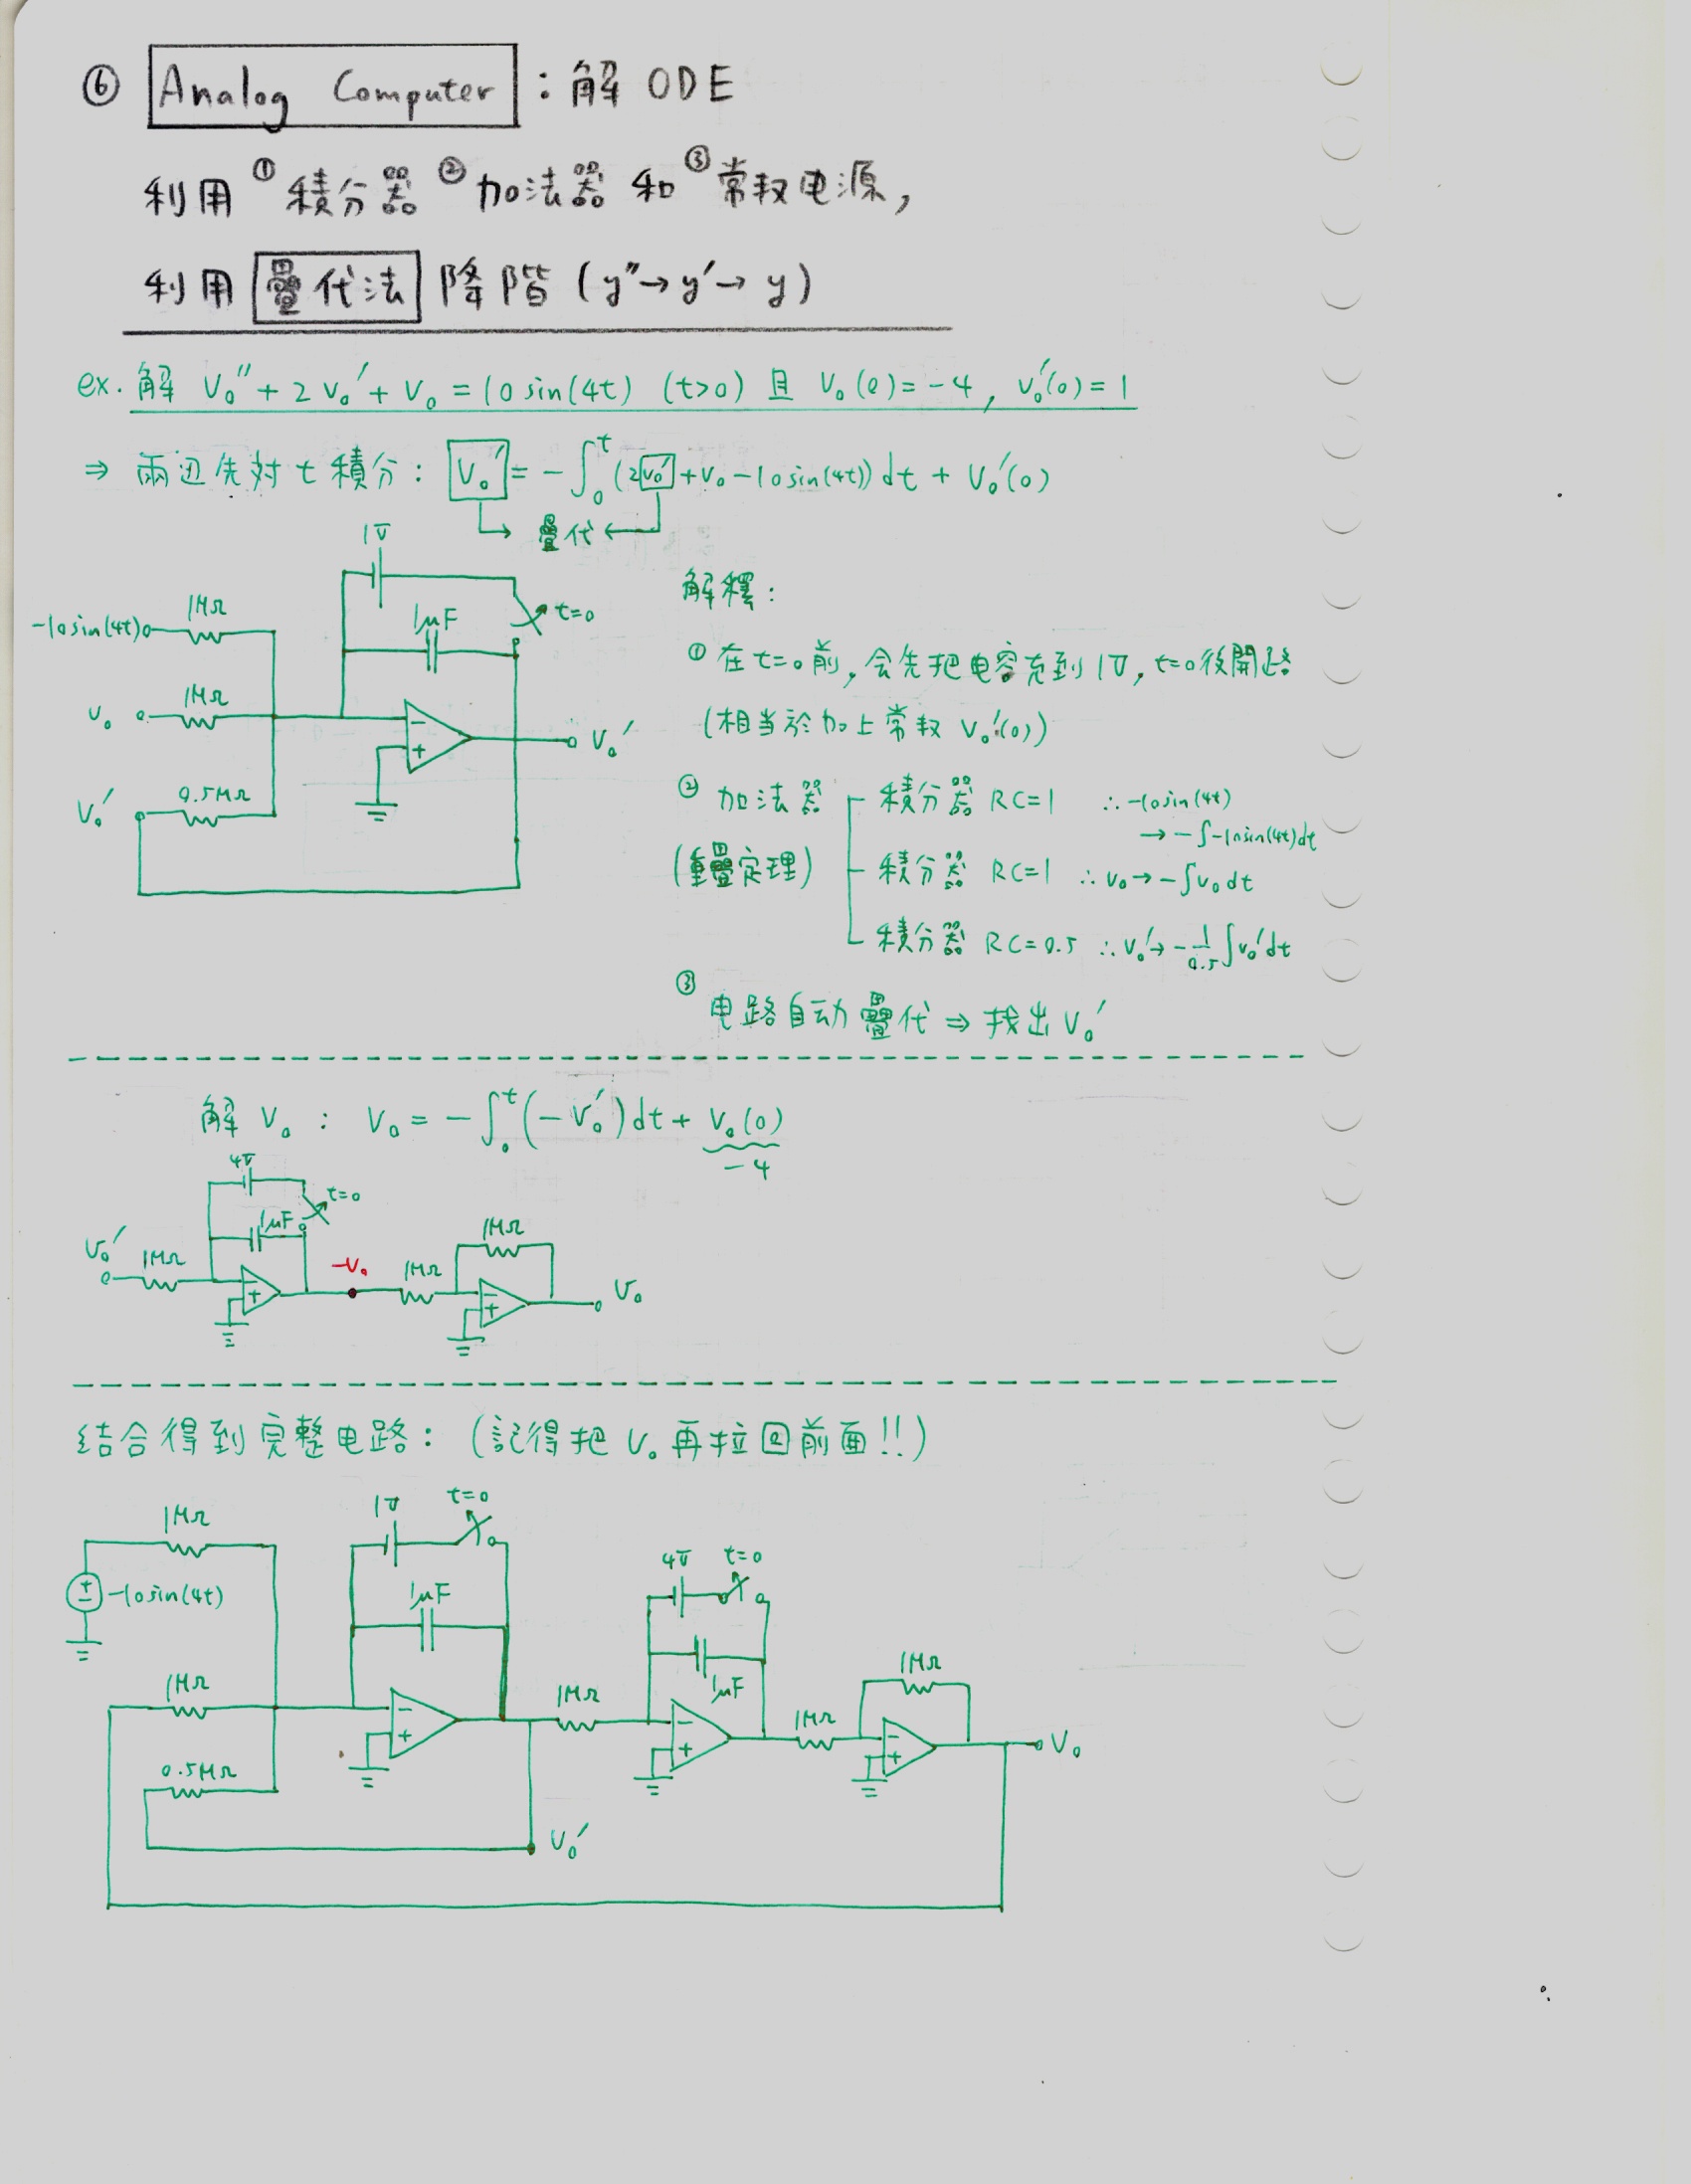 ⑥ Analog Computer : 解 ODE
利用 ①積分器 ②加法器 和 ③常数电源,
利用 疊代法 降階 (y″→y′→y)
ex. 解 V₀″+2V₀′+V₀=10sin(4t) (t>0) 且 V₀(0)=-4, V₀′(0)=1
⇒ 兩边先対 t 積分: V₀′ = -∫₀ᵗ(2V₀′+V₀-10sin(4t))dt + V₀′(0)
疊代
1V
1MΩ
1μF
t=0
-10sin(4t)
1MΩ
V₀
- +
V₀′
0.5MΩ
V₀′
解釋:
① 在t=0前, 会先把电容充到1V, t=0後開路
(相当於加上常数 V₀′(0))
② 加法器
(重疊定理)
積分器 RC=1 ∴-10sin(4t)
→ -∫-10sin(4t)dt
積分器 RC=1 ∴V₀→-∫V₀dt
積分器 RC=0.5 ∴V₀′→-1/0.5∫V₀′dt
③ 电路自动疊代 ⇒ 找出 V₀′
解 V₀ : V₀ = -∫₀ᵗ(-V₀′)dt + V₀(0)
-4
4V
t=0
1μF
1MΩ
V₀′ 1MΩ
-V₀
1MΩ
- +
- +
V₀
结合得到完整电路: (記得把 V₀ 再拉回前面!!)
1V t=0
1MΩ
4V t=0
± -10sin(4t)
1μF
1MΩ
1μF
1MΩ
1MΩ
1MΩ
- +
- +
- +
V₀
0.5MΩ
V₀′